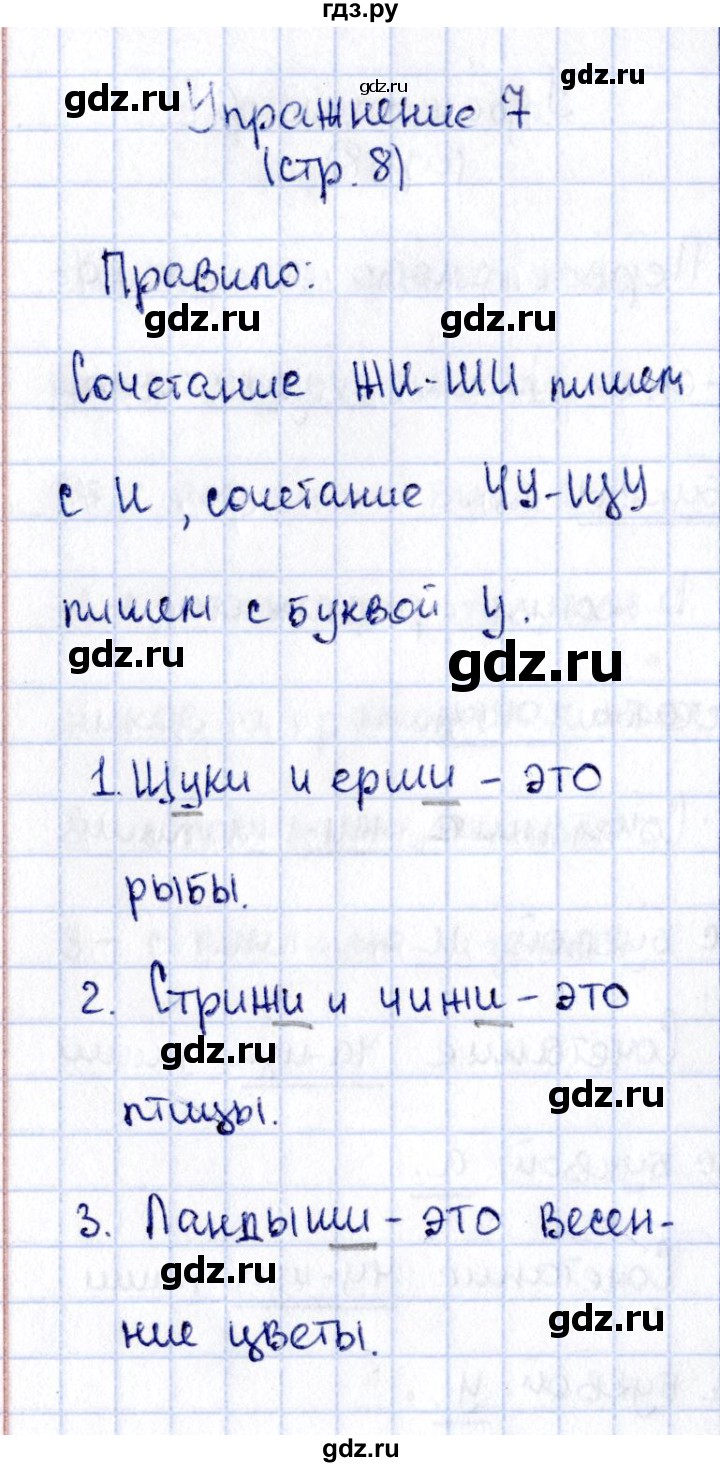 гдз.ру
gdz.ru
gdz.ru
gdz.ru
Упражнение 7
(стр. 8)
Правило:
gdz.ru
gdz.ru
Сочетание ЖИ-ШИ пишем
с И, сочетание ЧУ-ЩУ
пишем с буквой у.
gdz.ru
gdz.ru
1. Щуки и ерши - это
рыбы.
2. Стрижи и чижи - это
gdz.ru
gdz.ru
птицы.
3. Ландыши - это весен-
gdz.ru
gdz.ru
ние цветы.
gdz.ru